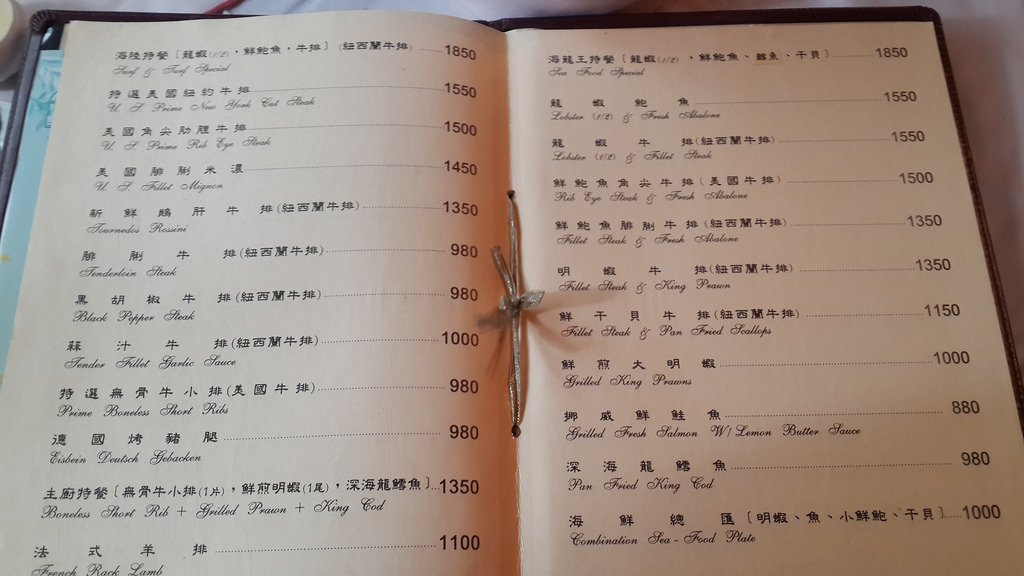 海陸特餐〔龍蝦(1/2)，鮮鮑魚，牛排〕(紐西蘭牛排) 1850
Surf & Turf Special
特選美國紐約牛排 1550
U. S Prime New York Cut Steak
美國角尖肋腓牛排 1500
U. S Prime Rib Eye Steak
美國腓脷米濃 1450
U. S. Fillet Mignon
新鮮鵝肝牛排(紐西蘭牛排) 1350
Tournedos Rossini
腓脷牛排(紐西蘭牛排) 980
Tenderloin Steak
黑胡椒牛排(紐西蘭牛排) 980
Black Pepper Steak
蒜汁牛排(紐西蘭牛排) 1000
Tender Fillet Garlic Sauce
特選無骨牛小排(美國牛排) 980
Prime Boneless Short Ribs
德國烤豬腿 980
Eisbein Deutsch Gebacken
主廚特餐〔無骨牛小排(1片)，鮮煎明蝦(1尾)，深海龍鱈魚〕 1350
Boneless Short Rib + Grilled Prawn + King Cod
法式羊排 1100
French Rack Lamb
海龍王特餐〔龍蝦(1/2)，鮮鮑魚、鱈魚、干貝〕 1850
Sea Food Special
龍蝦鮑魚 1550
Lobster (1/2) & Fresh Abalone
龍蝦牛排(紐西蘭牛排) 1550
Lobster (1/2) & Fillet Steak
鮮鮑魚角尖牛排(美國牛排) 1500
Rib Eye Steak & Fresh Abalone
鮮鮑魚腓脷牛排(紐西蘭牛排) 1350
Fillet Steak & Fresh Abalone
明蝦牛排(紐西蘭牛排) 1350
Fillet Steak & King Prawn
鮮干貝牛排(紐西蘭牛排) 1150
Fillet Steak & Pan Fried Scallops
鮮煎大明蝦 1000
Grilled King Prawns
挪威鮮鮭魚 880
Grilled Fresh Salmon W/Lemon Butter Sauce
深海龍鱈魚 980
Pan Fried King Cod
海鮮總匯〔明蝦、魚、小鮮鮑、干貝〕 1000
Combination Sea-Food Plate